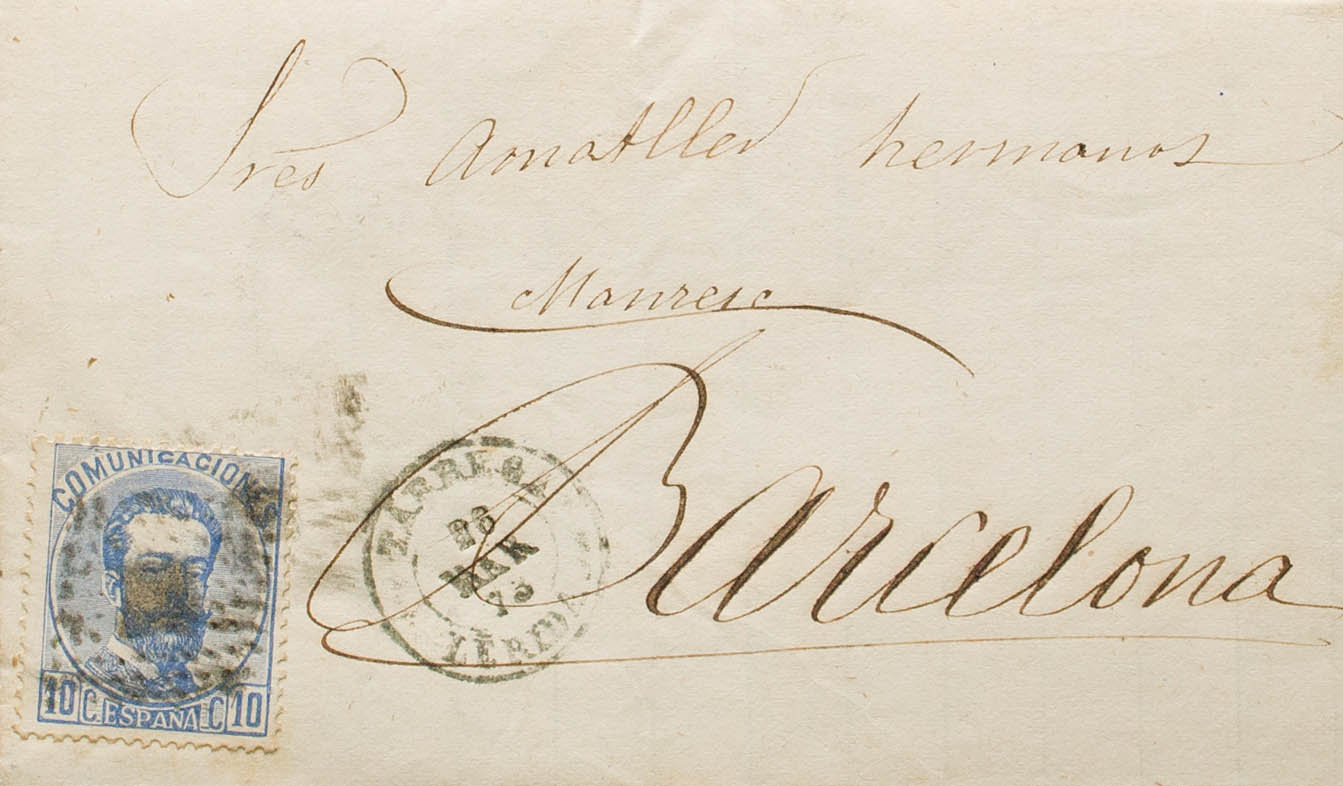 Sres Amatller hermanos
Manresa
Barcelona
COMUNICACIONES
10 C. ESPAÑA C 10
TARREGA
26
MAR
73
LERIDA